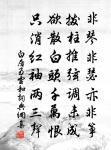 非琴非瑟亦非箏
撥柱推弦調未成
欲散白頭千萬恨
只消紅袖兩三聲
白居易雲和